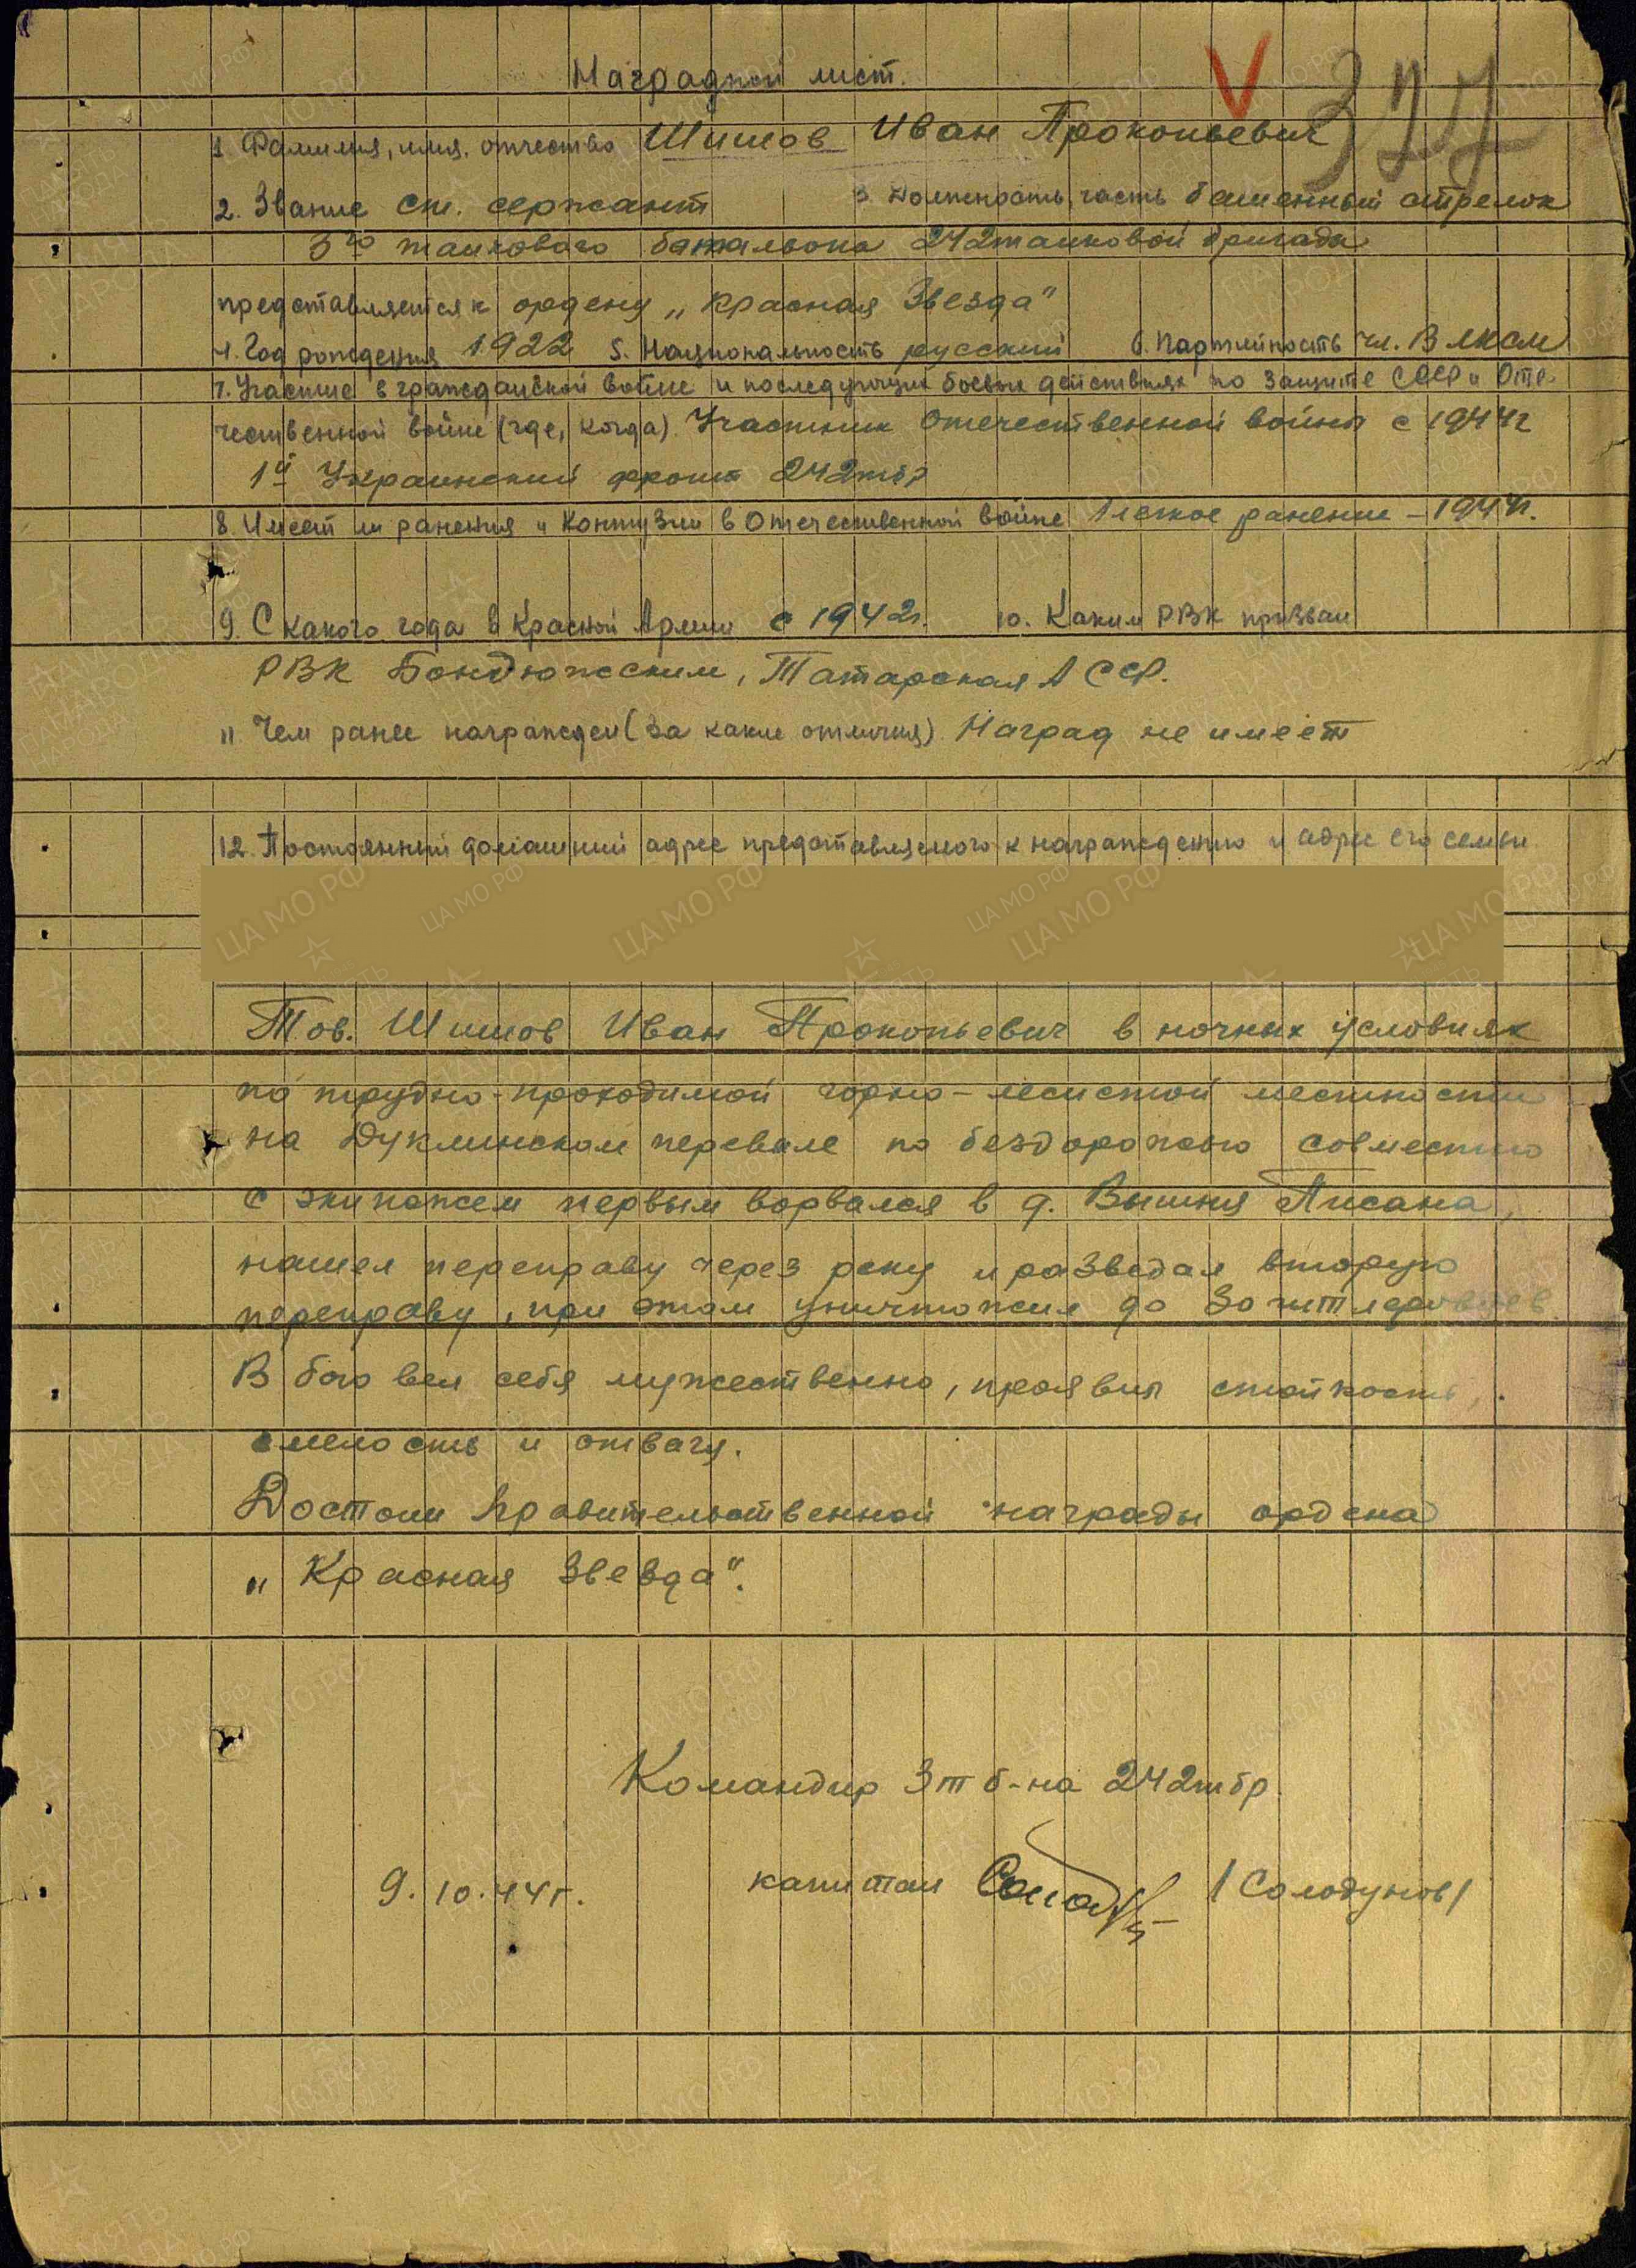 Наградной лист.
327
1. Фамилия, имя, отчество Шишов Иван Прокопьевич
2. Звание ст. сержант 3. Должность, часть башенный стрелок
3го танкового батальона 242 танковой бригады
представляется к ордену „Красная Звезда"
4. Год рождения 1922 5. Национальность русский 6. Партийность чл. ВЛКСМ
7. Участие в гражданской войне и последующих боевых действиях по защите СССР и Оте-
чественной войне (где, когда). Участник Отечественной войны с 1944г
1й Украинский фронт 242тбр
8. Имеет ли ранения и контузии в Отечественной войне Легкое ранение – 1944г.
9. С какого года в Красной Армии с 1942г. 10. Каким РВК призван
РВК Бондюжским, Татарская АССР.
11 Чем ранее награжден (за какие отличия) Наград не имеет
12. Постоянный домашний адрес представляемого к награждению и адрес его семьи
Тов. Шишов Иван Прокопьевич в ночных условиях
по трудно-проходимой горно-лесистой местности
на Дуклинском перевале по бездорожью совместно
с экипажем первым ворвался в д. Вышня Писана,
нашел переправу через реку и разведал вторую
переправу, при этом уничтожил до 30 гитлеровцев.
В бою вел себя мужественно, проявил стойкость,
смелость и отвагу.
Достоин правительственной награды ордена
„Красная Звезда".
Командир 3 т б-на 242тбр.
9.10.44г. капитан /Солодунов/